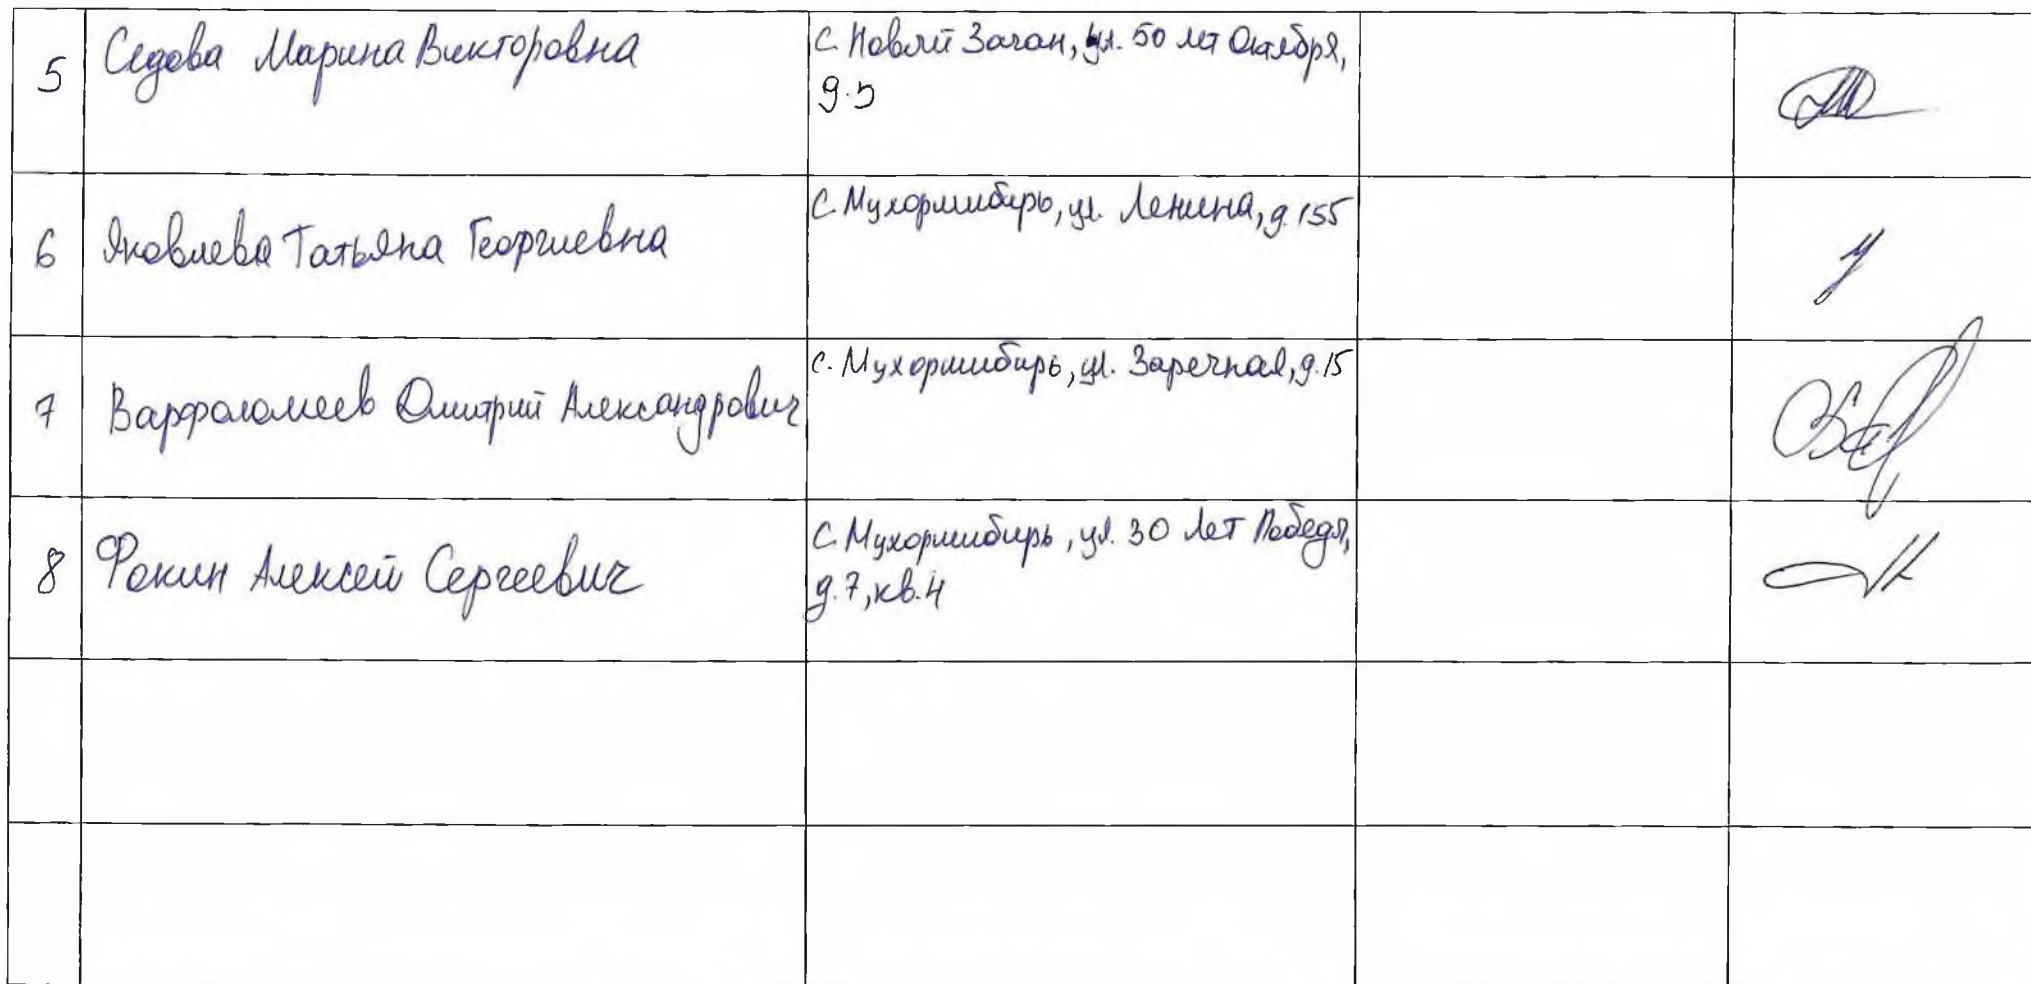 5 Седова Марина Викторовна с. Новый Заган, ул. 50 лет Октября,
д.5
6 Яковлева Татьяна Георгиевна с. Мухоршибирь, ул. Ленина, д.155
7 Варфоломеев Дмитрий Александрович с. Мухоршибирь, ул. Заречная, д.15
8 Фокин Алексей Сергеевич с. Мухоршибирь, ул. 30 лет Победы,
д.7, кв.4